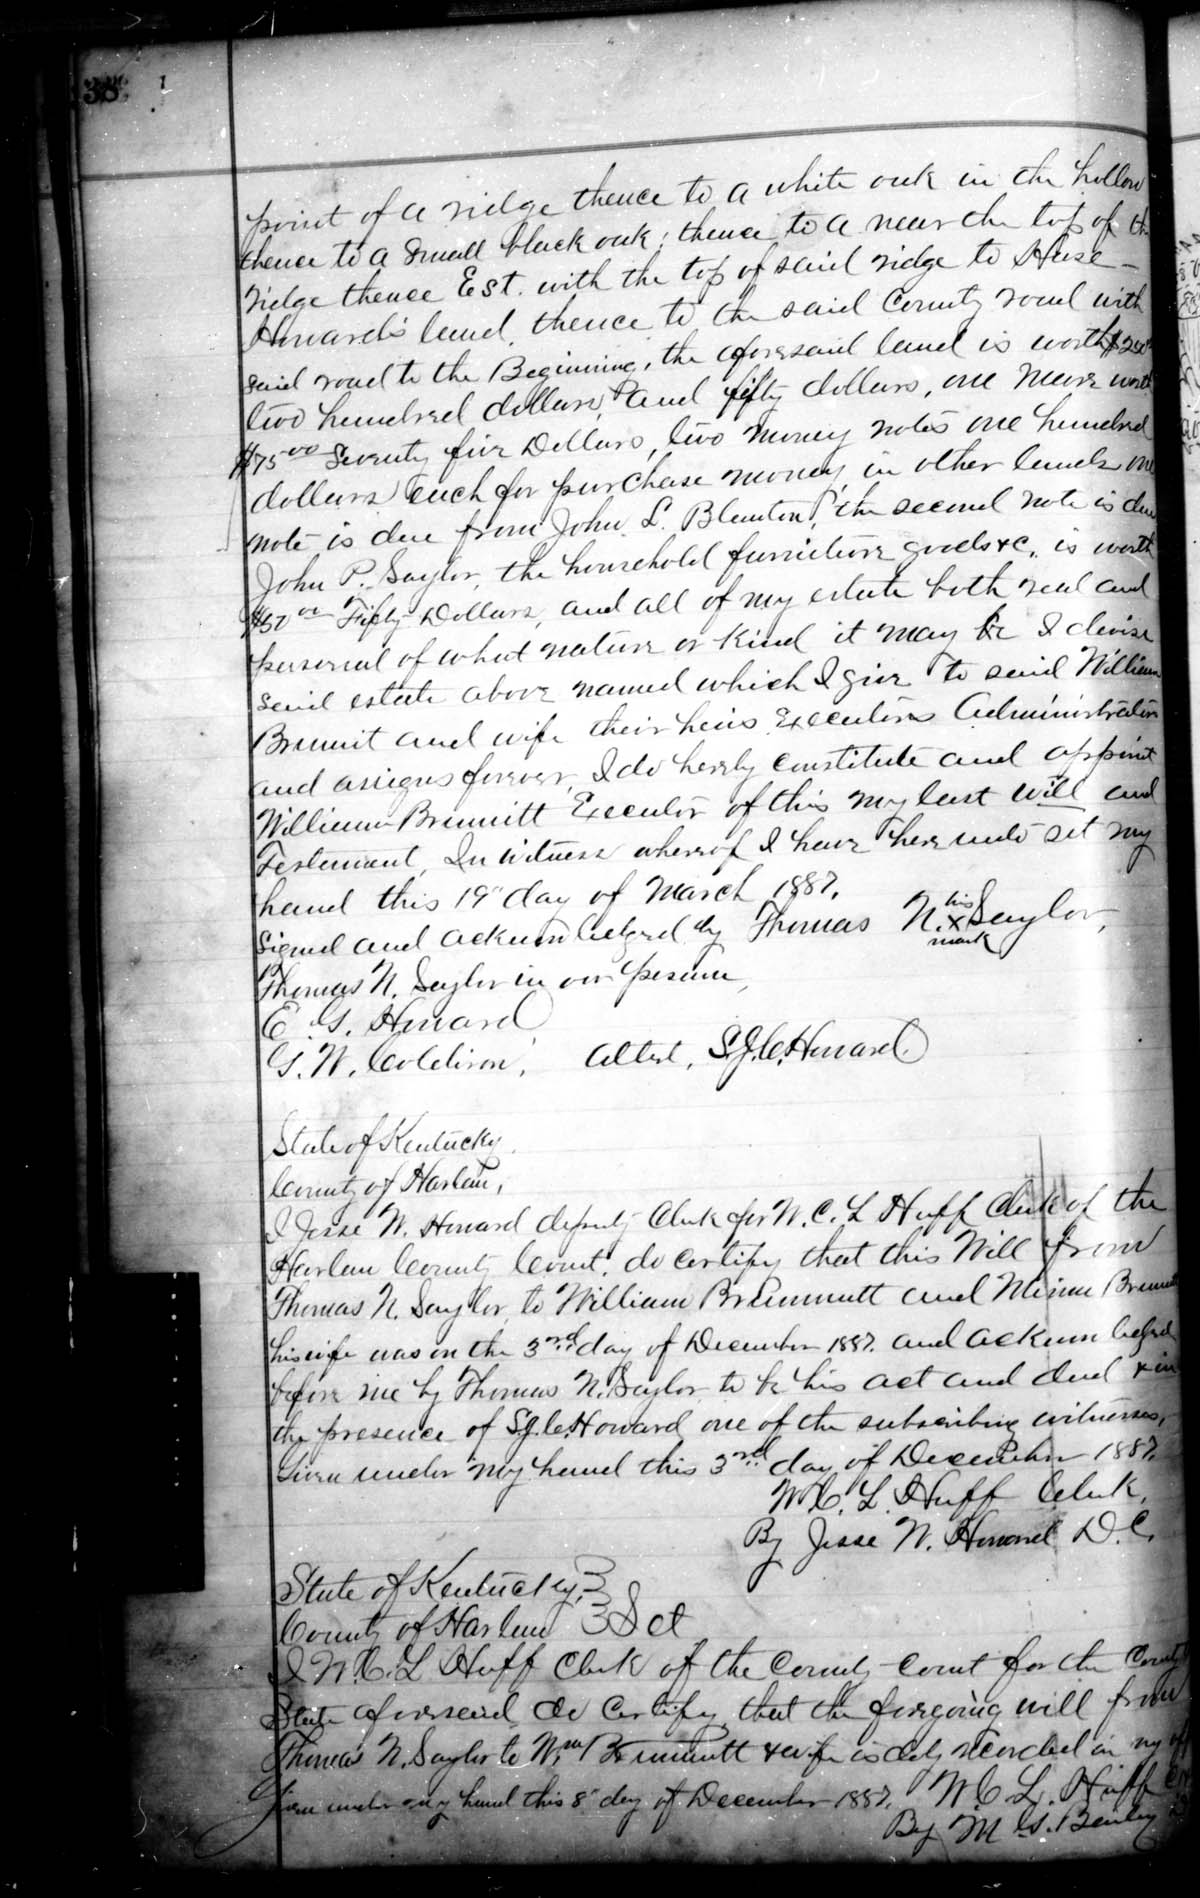 38
point of a ridge thence to a white oak in the hollow
thence to a small black oak; thence to a near the top of the
ridge thence Est. with the top of said ridge to
Howards land, thence to the said County road with
said road to the Beginning, the aforesaid land is worth
two hundred dollars, and fifty dollars, one mare worth
$75 00 Seventy five Dollars, two money notes one hundred
dollars each for purchase money, in other lands one
note is due from John L. Blanton, the second note is due
John P. Saylor, the household furniture goods &c, is worth
$50 00 Fifty Dollars, and all of my estate both real and
personal of what nature or kind it may be I devise
said estate above named which I give to said William
Brumit and wife their heirs Executors Administrators
and assigns forever, I do herely constitute and appoint
William Brumitt Executor of this my last will and
Testement, In witness whereof I have here unto set my
hand this 19" day of March 1887.
Signed and acknowledged by Thomas N. his x mark Saylor,
Thomas N. Saylor in our presence,
E. G. Howard
G. W. Coldiron, Attest, S.J.C. Howard
State of Kentucky
County of Harlan,
I Jesse W. Howard deputy Clerk for W. C. L Huff Clerk of the
Harlan County Court, do certify that this Will from
Thomas N. Saylor to William Brummutt and
his wife was on the 3rd day of December 1887. and acknowledged
before me by Thomas N. Saylor to be his act and deed & in
the presence of S.J.C. Howard one of the subscribing witnesses,
Given under my hand this 3rd day of December 1887.
W. C. L. Huff Clerk,
By Jesse W. Howard D. C.
State of Kentucky,
County of Harlan Sct
I W. C. L Huff Clerk of the County Court for the County
State aforesaid do certify that the foregoing will from
Thomas N. Saylor to Wm Brummutt & wife is duly recorded in my
Given under my hand this 8" day of December 1887. W C L. Huff
By M G. Bailey